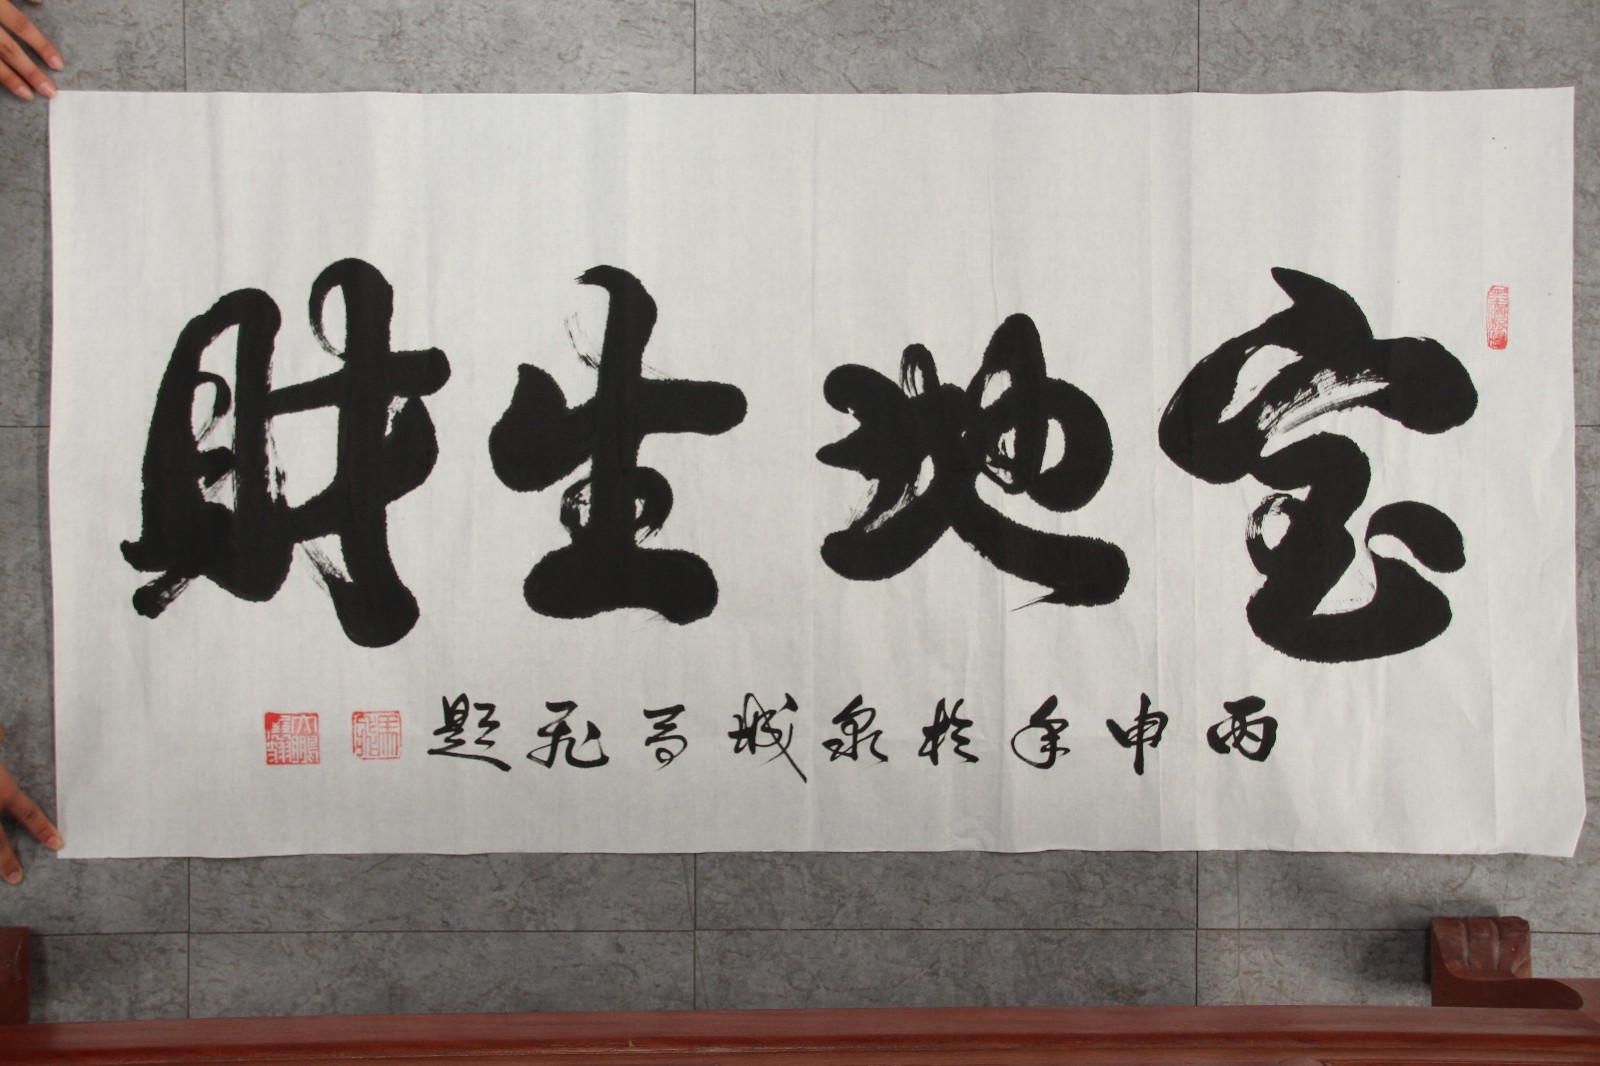 宝地生财
丙申年於泉城高飞题